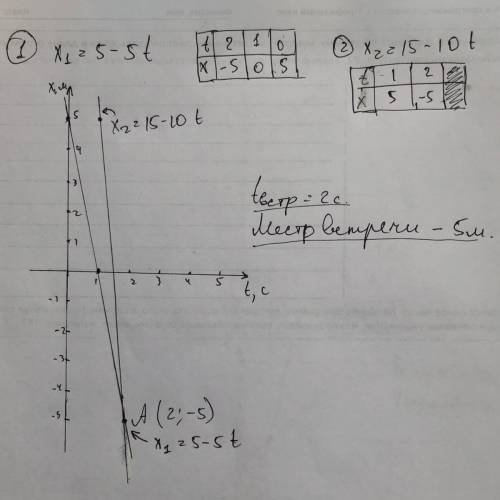 ① x₁ = 5 - 5t
t 2 1 0
x -5 0 5
② x₂ = 15 - 10t
t 1 2
x 5 -5
x, м
5
x₂ = 15 - 10t
4
3
2
1
1 2 3 4 5
t, с
-1
-2
-3
-4
-5
A (2; -5)
x₁ = 5 - 5t
tвстр = 2 с.
Местр встречи - 5 м.